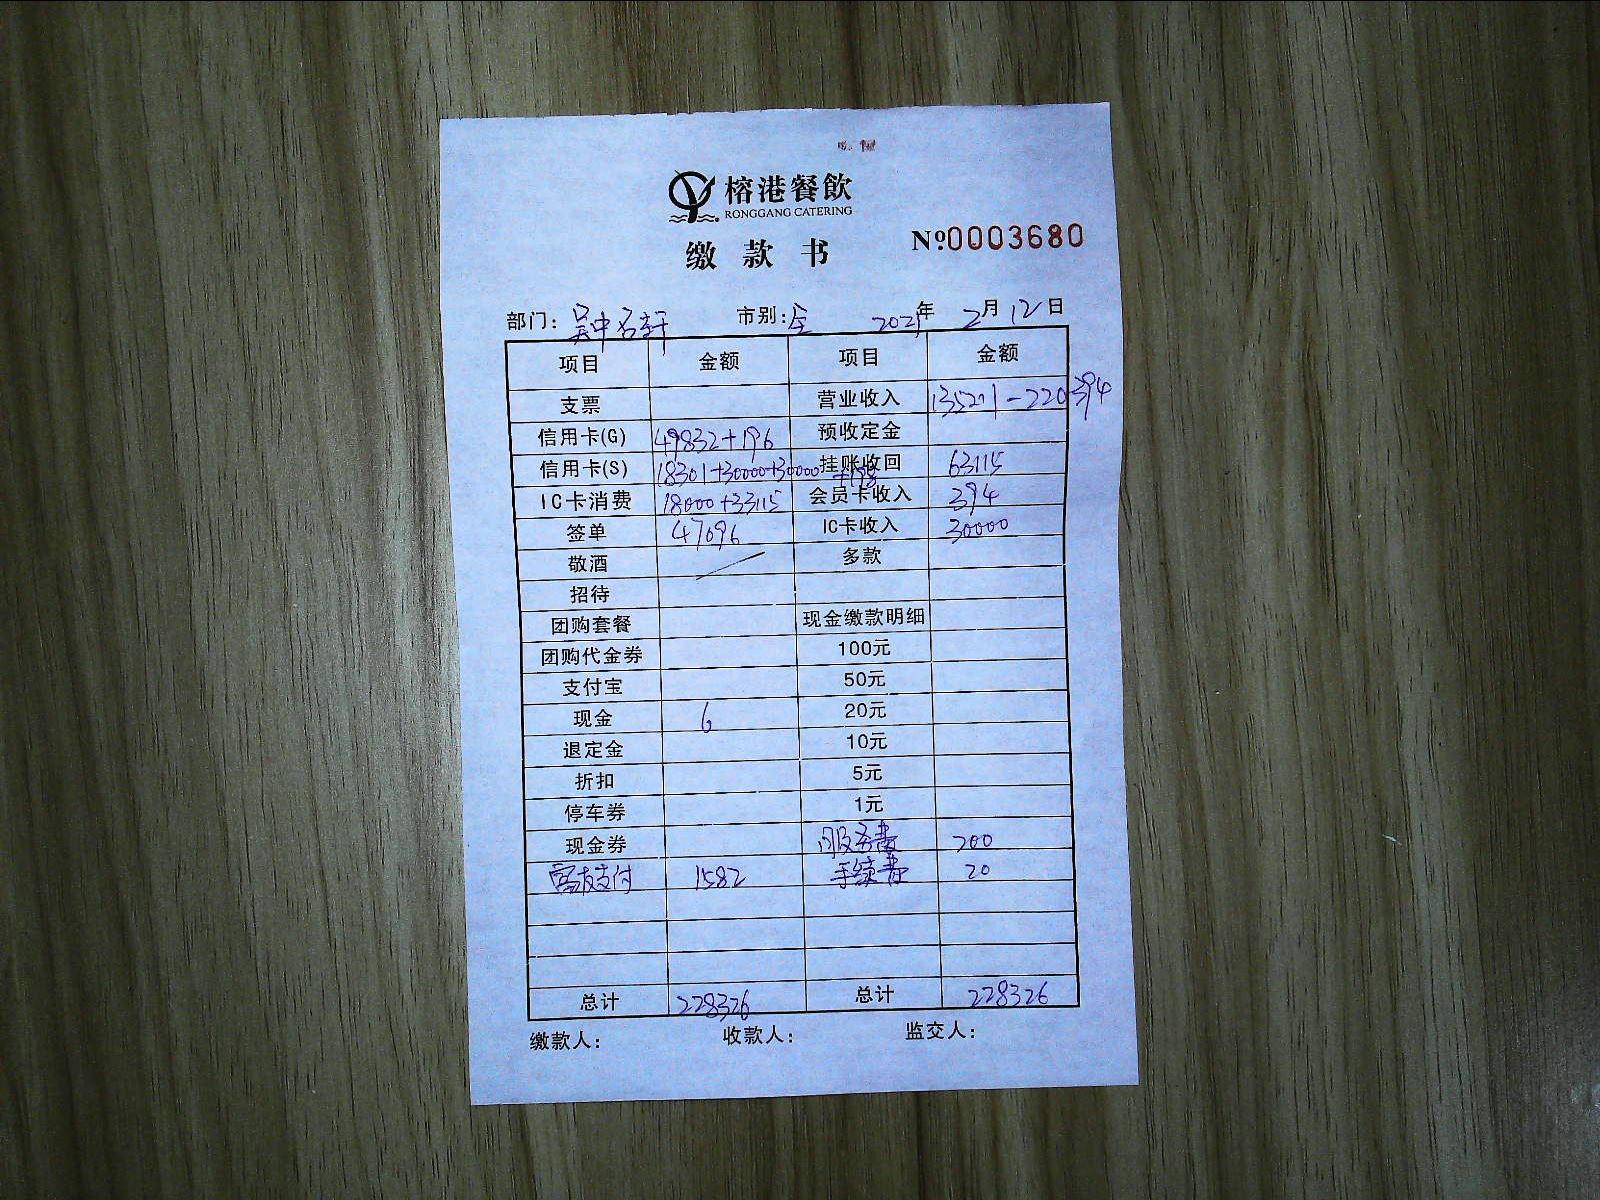 榕港餐飲
RONGGANG CATERING
缴款书 Nº:0003680
部门: 吴中名轩 市别: 全 2021年 2月12日
项目 金额 项目 金额
支票 营业收入 135211-220-394
信用卡(G) 49832+196 预收定金
信用卡(S) 18301+30000+30000+198 挂账收回 63115
IC卡消费 18000+33115 会员卡收入 394
签单 47096 IC卡收入 30000
敬酒 多款
招待
团购套餐 现金缴款明细
团购代金券 100元
支付宝 50元
现金 6 20元
退定金 10元
折扣 5元
停车券 1元
现金券 服务费 200
富友支付 1582 手续费 20
总计 228326 总计 228326
缴款人: 收款人: 监交人: